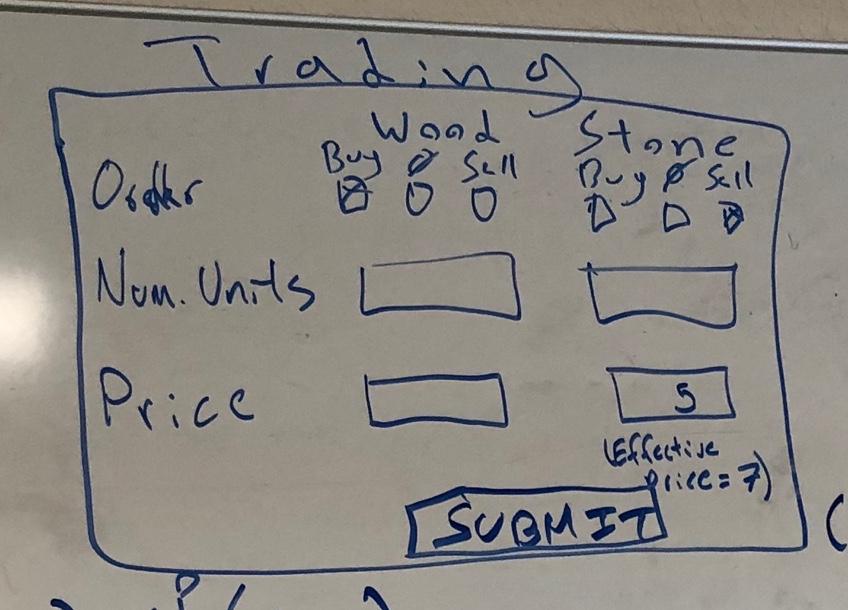 Trading
Wood Stone
Buy Ø Sell Buy Ø Sell
Order
Num. Units
Price 5
(Effective
price = 7)
SUBMIT
(